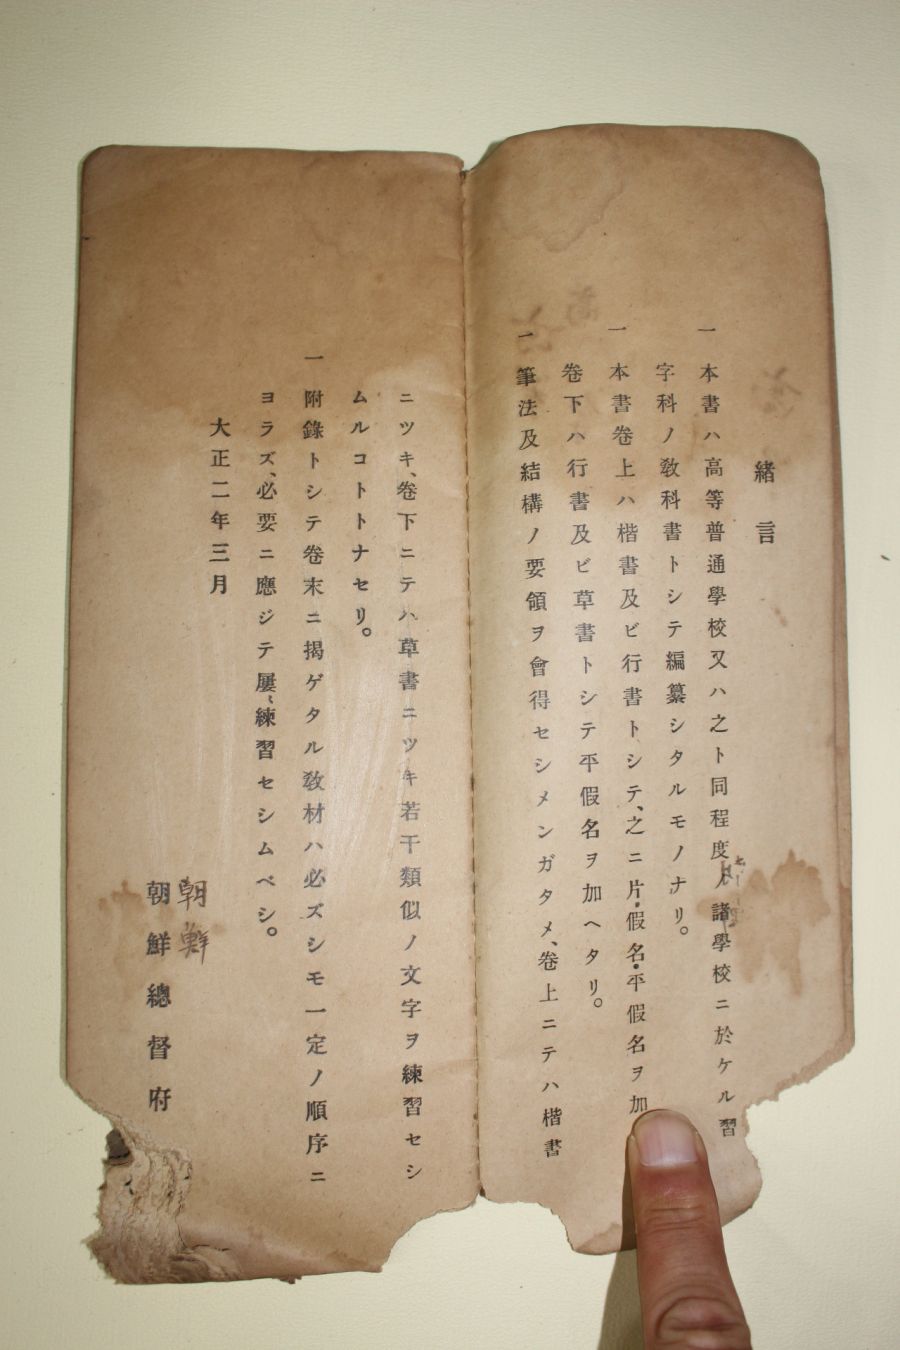 緒言
一 本書ハ高等普通學校又ハ之ト同程度ノ諸學校ニ於ケル習
字科ノ敎科書トシテ編纂シタルモノナリ。
一 本書卷上ハ楷書及ビ行書トシテ、之ニ片・假名・平假名ヲ加
卷下ハ行書及ビ草書トシテ平假名ヲ加ヘタリ。
一 筆法及結構ノ要領ヲ會得セシメンガタメ、卷上ニテハ楷書
ニツキ、卷下ニテハ草書ニツキ若干類似ノ文字ヲ練習セシ
ムルコトトナセリ。
一 附錄トシテ卷末ニ揭ゲタル敎材ハ必ズシモ一定ノ順序ニ
ヨラズ、必要ニ應ジテ屢〻練習セシムベシ。
大正二年三月
朝鮮
朝鮮總督府